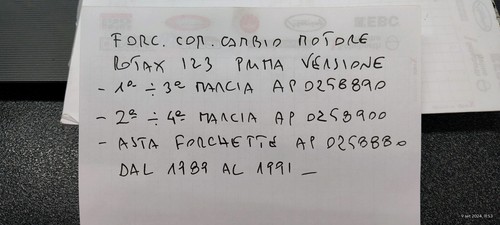 FORC. COM. CAMBIO MOTORE
ROTAX 123 PRIMA VERSIONE
- 1ª ÷ 3ª MARCIA AP 0258890
- 2ª ÷ 4ª MARCIA AP 0258900
- ASTA FORCHETTE AP 0258880
DAL 1989 AL 1991 _
EBC
9 set 2024, 8:53